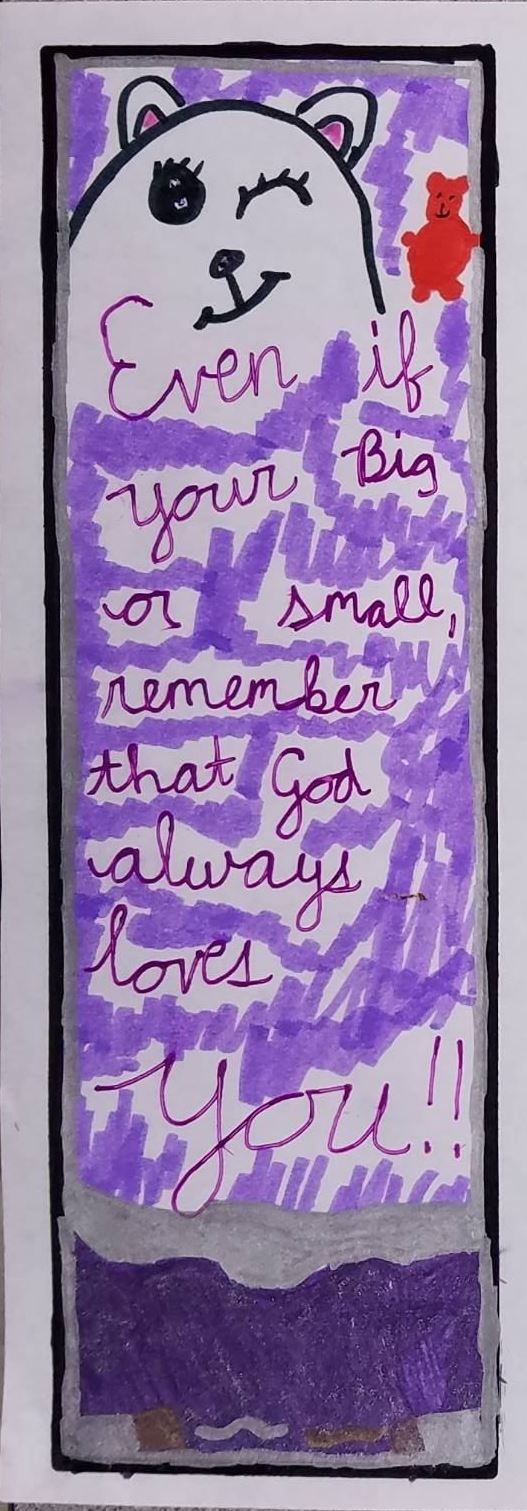 Even if
your Big
or small,
remember
that God
always
loves
You!!